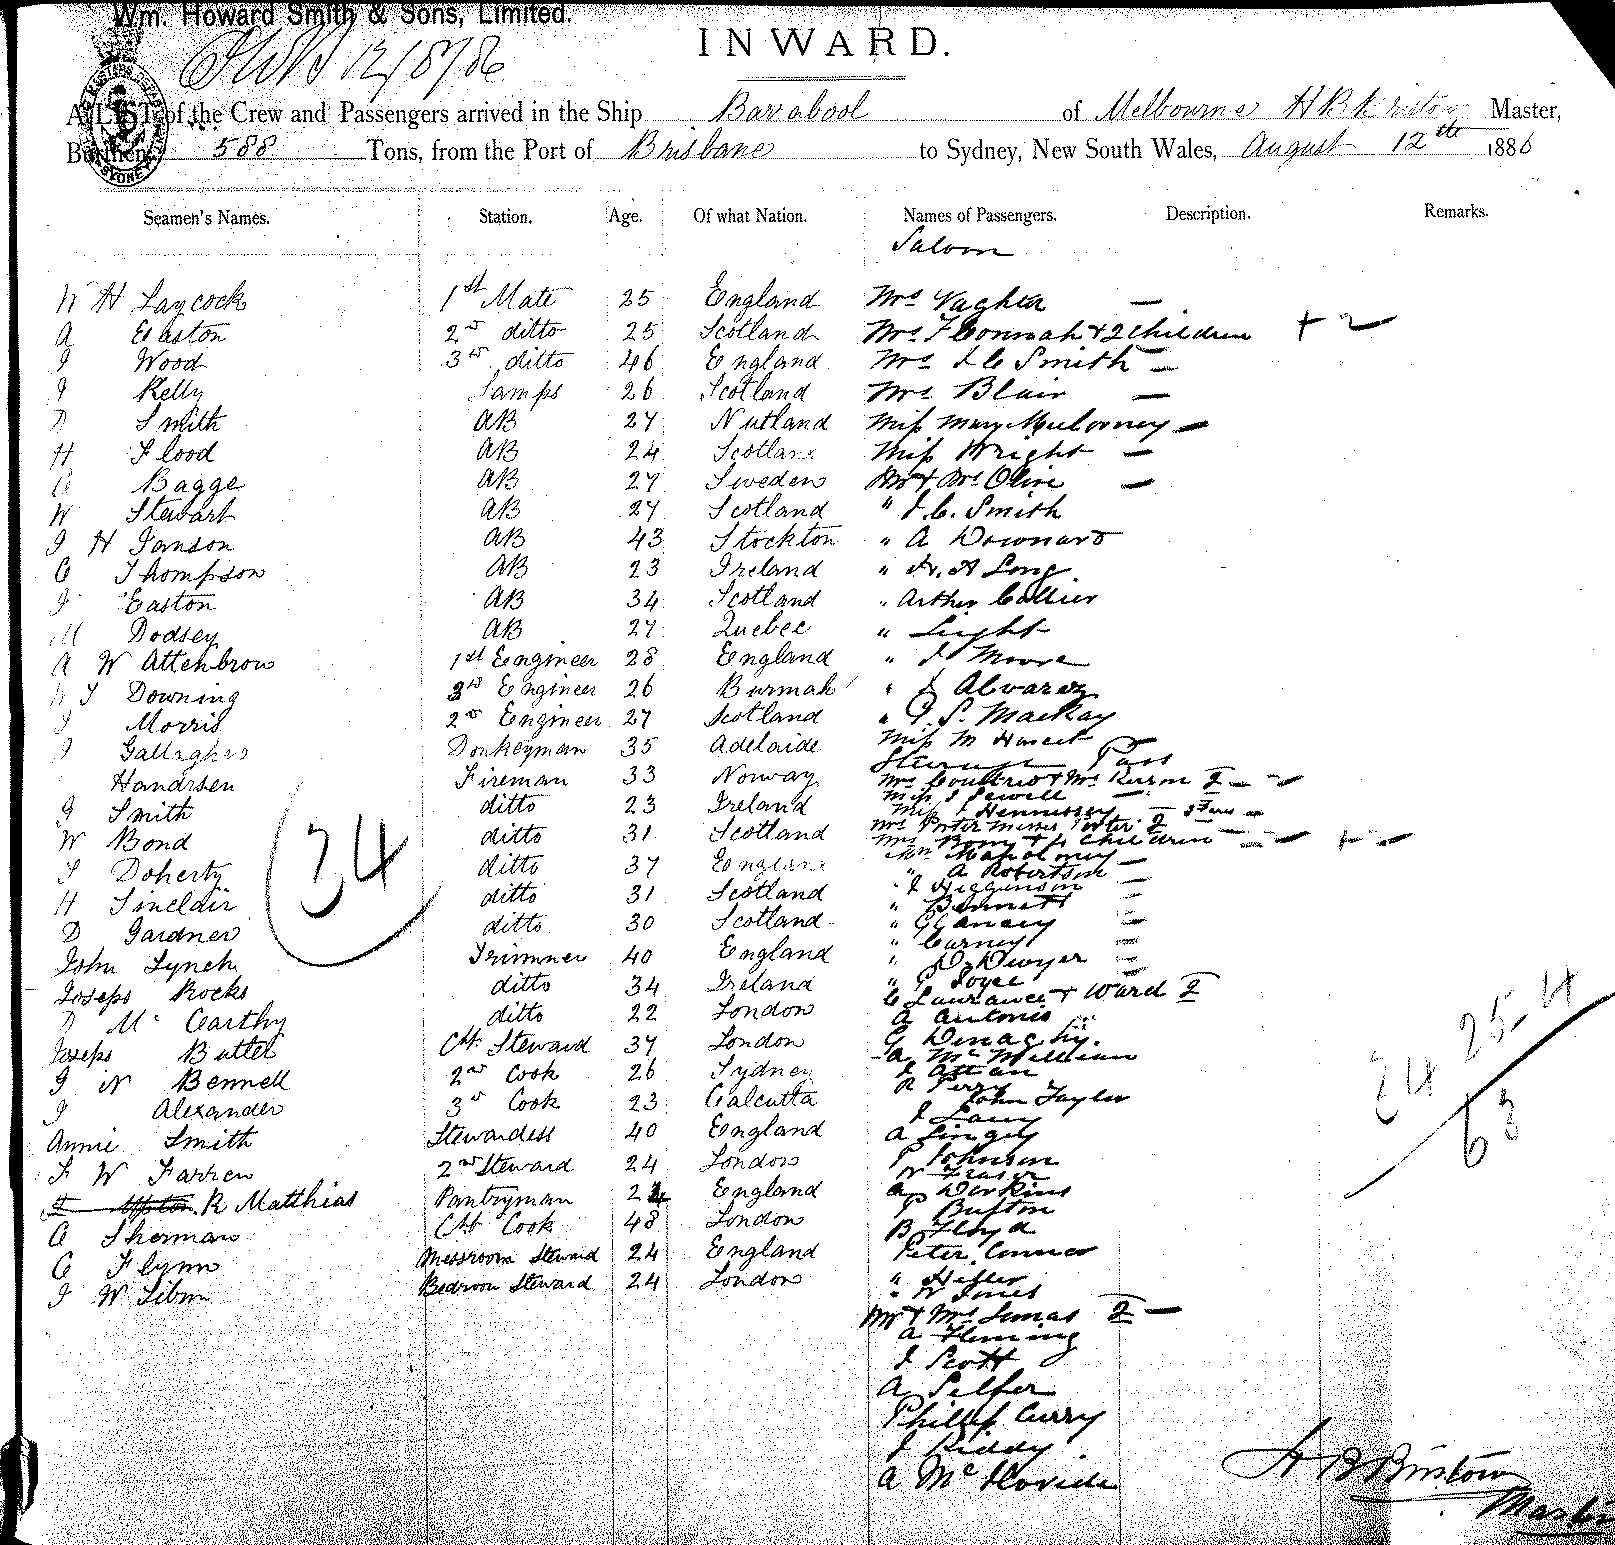 Wm. Howard Smith & Sons, Limited.
12/8/86
INWARD.
A LIST of the Crew and Passengers arrived in the Ship Barabool of Melbourne H B Master,
Burthen 588 Tons, from the Port of Brisbane to Sydney, New South Wales, August 12th 1886
Seamen's Names. Station. Age. Of what Nation. Names of Passengers. Description. Remarks.
Saloon
W H Laycock 1st Mate 25 England Mrs
A Easton 2nd ditto 25 Scotland Mrs & 2 Children + 2
J Wood 3rd ditto 46 England Mrs J C Smith —
J Kelly Lamps 26 Scotland Mrs Blair —
D Smith AB 27 Miss Mary —
H Flood AB 24 Scotland Miss Wright —
Bagge AB 27 Sweden Mr & Mrs Olive —
W Stewart AB 27 Scotland " J. C. Smith
J H Janson AB 43 Stockton " A Downard
C Thompson AB 23 Ireland " A Long
J Easton AB 34 Scotland " Arthur Collier
M Dodsey AB 27 Quebec " Light
A W Attenbrow 1st Engineer 28 England " J Moore
Downing 3rd Engineer 26 Burmah " J Alvarez
J Morris 2nd Engineer 27 Scotland " J. S. Mackay
J Gallagher Donkeyman 35 Adelaide Miss M
Steerage Pass
Handrsen Fireman 33 Norway Mrs & Mrs 2 —
Miss J Sewell —
J Smith ditto 23 Ireland Miss Hennessey —
Mrs Porter 2
W Bond ditto 31 Scotland Mrs & 4 Children
J Doherty ditto 37 England
" A Robertson —
H Sinclair ditto 31 Scotland " J Higginson —
" Bennett
D Gardner ditto 30 Scotland " Glancey
" Carney
John Lynch Trimmer 40 England " D Dwyer
Joseph Rocks ditto 34 Ireland " Joyce
C Laurance & Ward 2
D Mc Carthy ditto 22 London A Antonio
Joseph Butler Ch Steward 37 London G
A McMillian
J N Bennell 2nd Cook 26 Sydney J
R Perry
J Alexander 3rd Cook 23 Calcutta John Taylor
J
Annie Smith Stewardess 40 England A
F W Farren 2nd Steward 24 London P Johnson
W Fraser
R Matthias Pantryman 24 England A Workins
Bufton
C Sherman Ch Cook 48 London B Floyd
C Flynn Messroom Steward 24 England Peter Connor
J W Bedroom Steward 24 London "
" W Jones
Mr & Mrs Lumas 2 —
A Fleming
J Scott
A Selfer
Phillip Curry
J Kiddy
A Mc
34
25-4
34
63
H B Bristow
Master